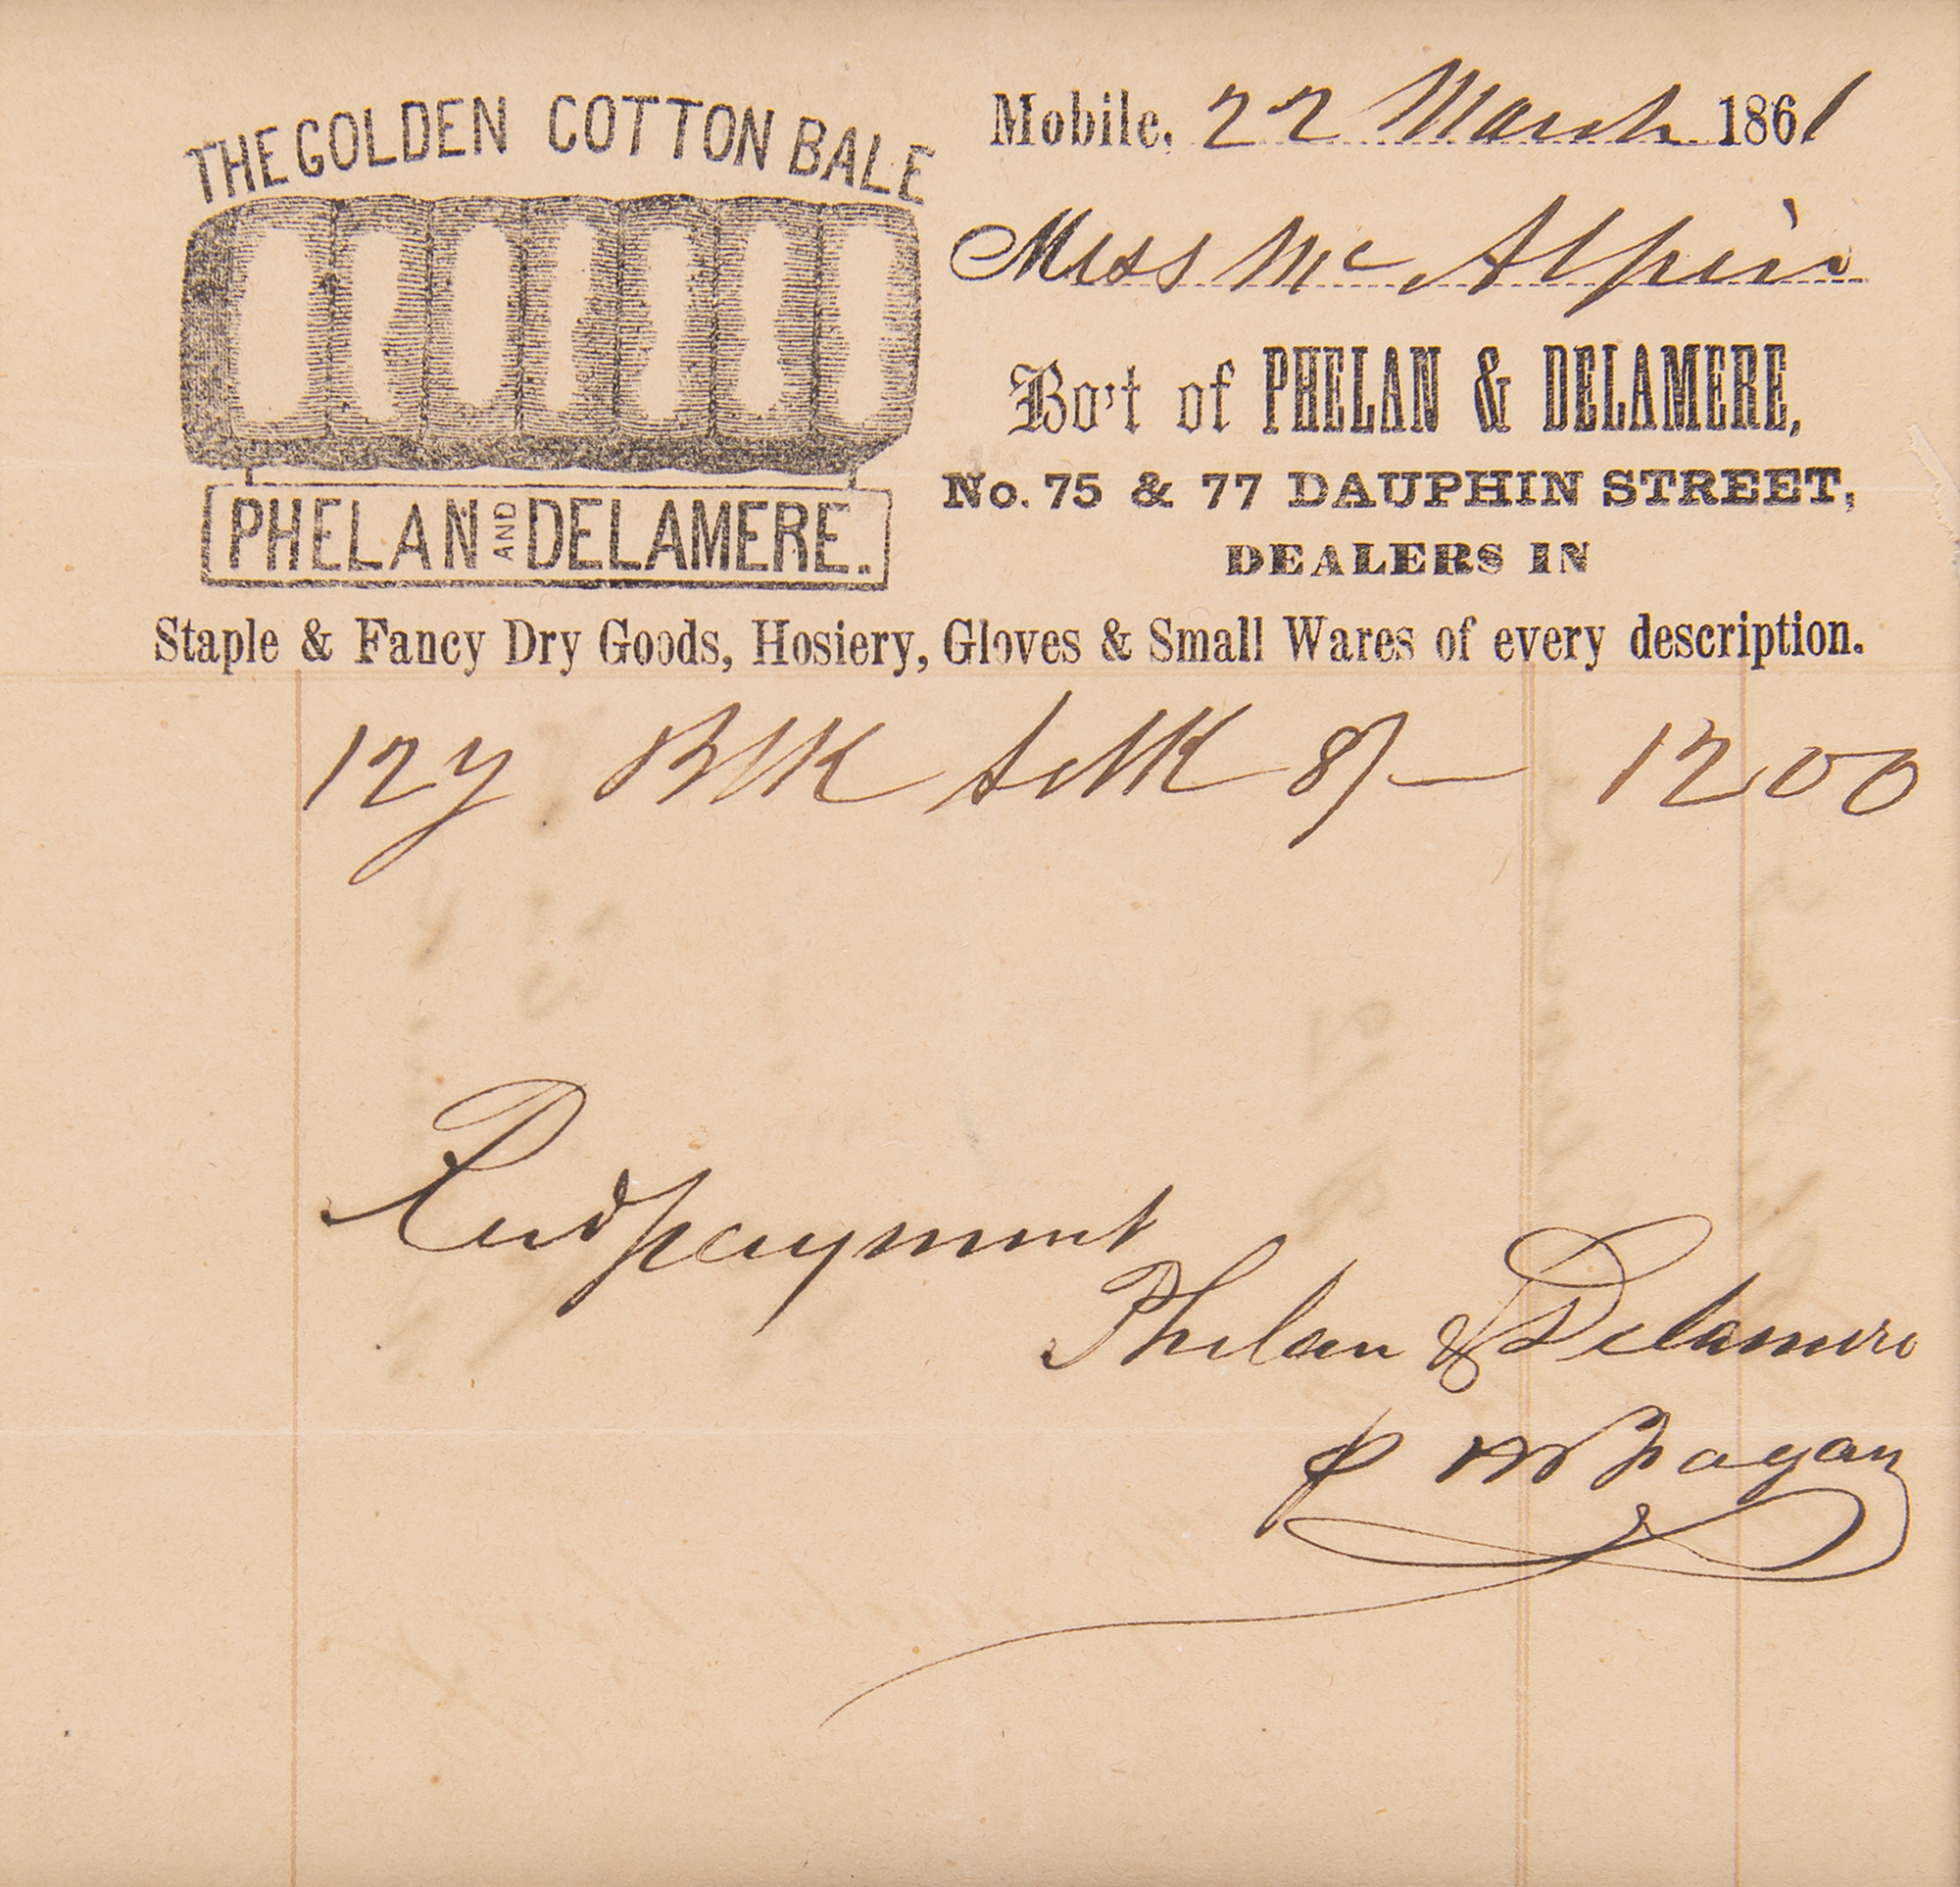 THE GOLDEN COTTON BALE
PHELAN AND DELAMERE.
Mobile, 22 March 1861
Miss Mc Alpin
Bo't of PHELAN & DELAMERE,
No. 75 & 77 DAUPHIN STREET,
DEALERS IN
Staple & Fancy Dry Goods, Hosiery, Gloves & Small Wares of every description.
12 y Blk Silk 8/— 12 00
Recd payment
Phelan & Delamere
p Fagan